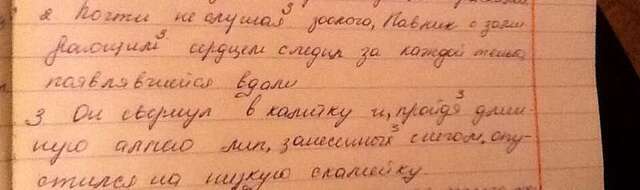 2 Почти не слушая³ зоолога, Павлик с зами
рающим³ сердцем следил за каждой телегой
появлявшейся вдали
3 Он свернул в калитку и, пройдя³ длин-
ную аллею лип, занесённых³ снегом, опу-
стился на низкую скамейку